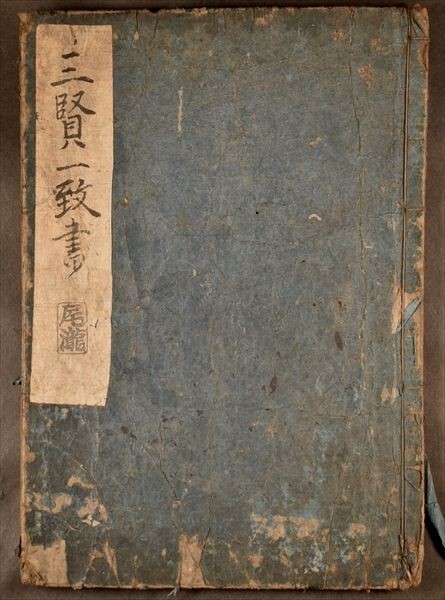 三賢一致書
尾瀧